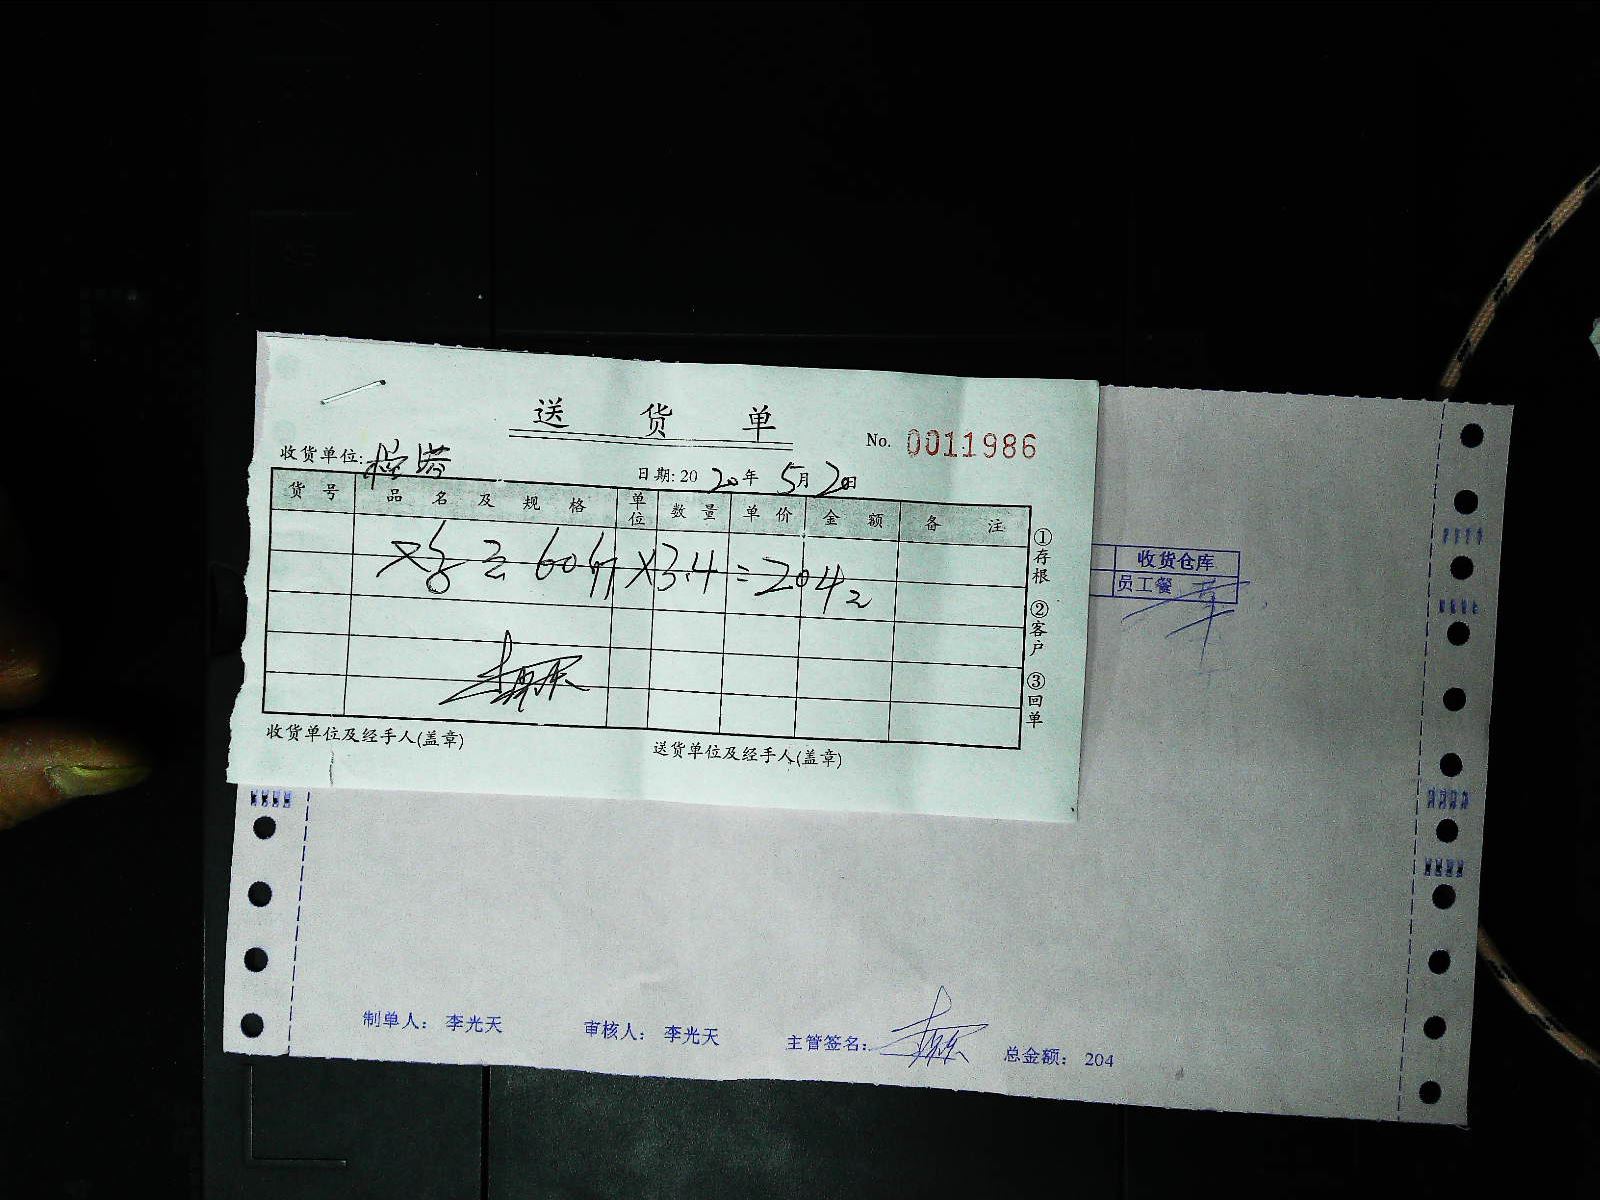 送 货 单
No. 0011986
收货单位:
日期: 2020年 5月20日
货 号 品 名 及 规 格 单位 数 量 单 价 金 额 备 注
60斤 X3.4 = 204
①存根 ②客户 ③回单
收货单位及经手人(盖章) 送货单位及经手人(盖章)
收货仓库
员工餐
制单人： 李光天 审核人： 李光天 主管签名： 总金额： 204